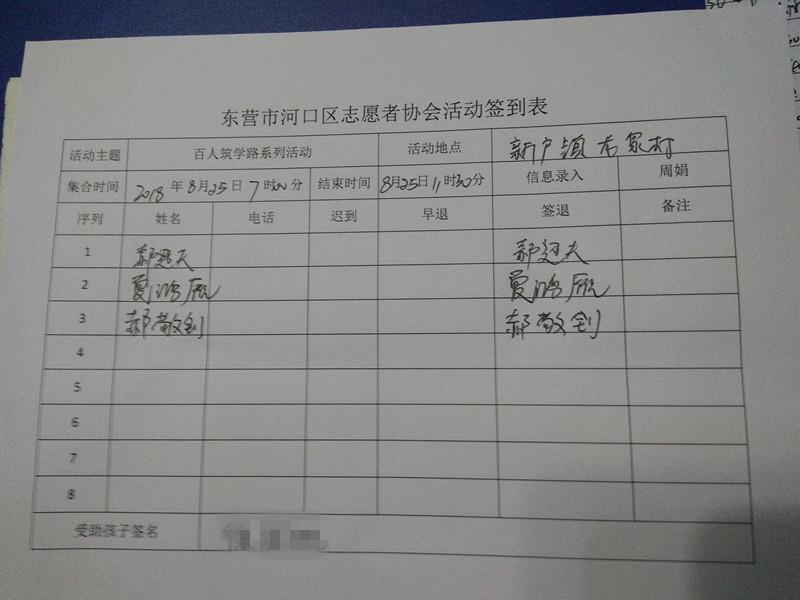 东营市河口区志愿者协会活动签到表
活动主题 百人筑学路系列活动 活动地点 新户镇 家村
集合时间 2018年8月25日7时00分 结束时间 8月25日11时30分 信息录入 周娟
序列 姓名 电话 迟到 早退 签退 备注
1 郝翅天 郝翅天
2 夏鸿雁 夏鸿雁
3 郝敬钊 郝敬钊
4
5
6
7
8
受助孩子签名